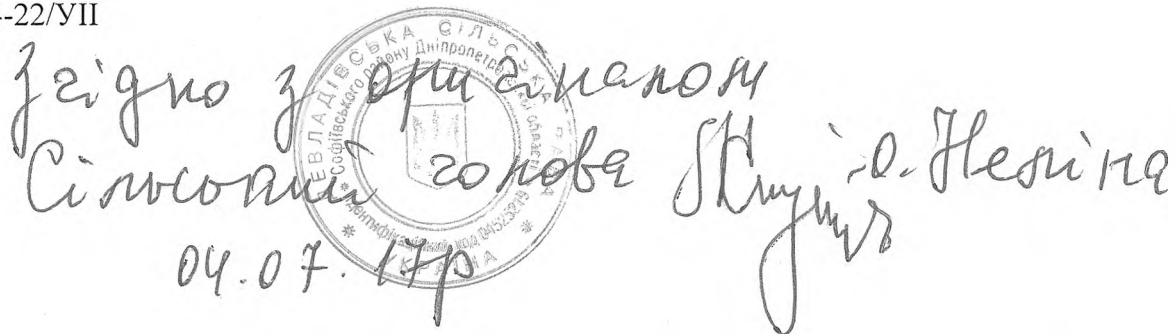 -22/УІІ
Згідно з оригіналом
Сільський голова О. Неліна
04.07.17р
ЕВЛАДІВСЬКА СІЛЬСЬКА РАДА
Софіївського району Дніпропетровської області
Ідентифікаційний код 04525219
УКРАЇНА